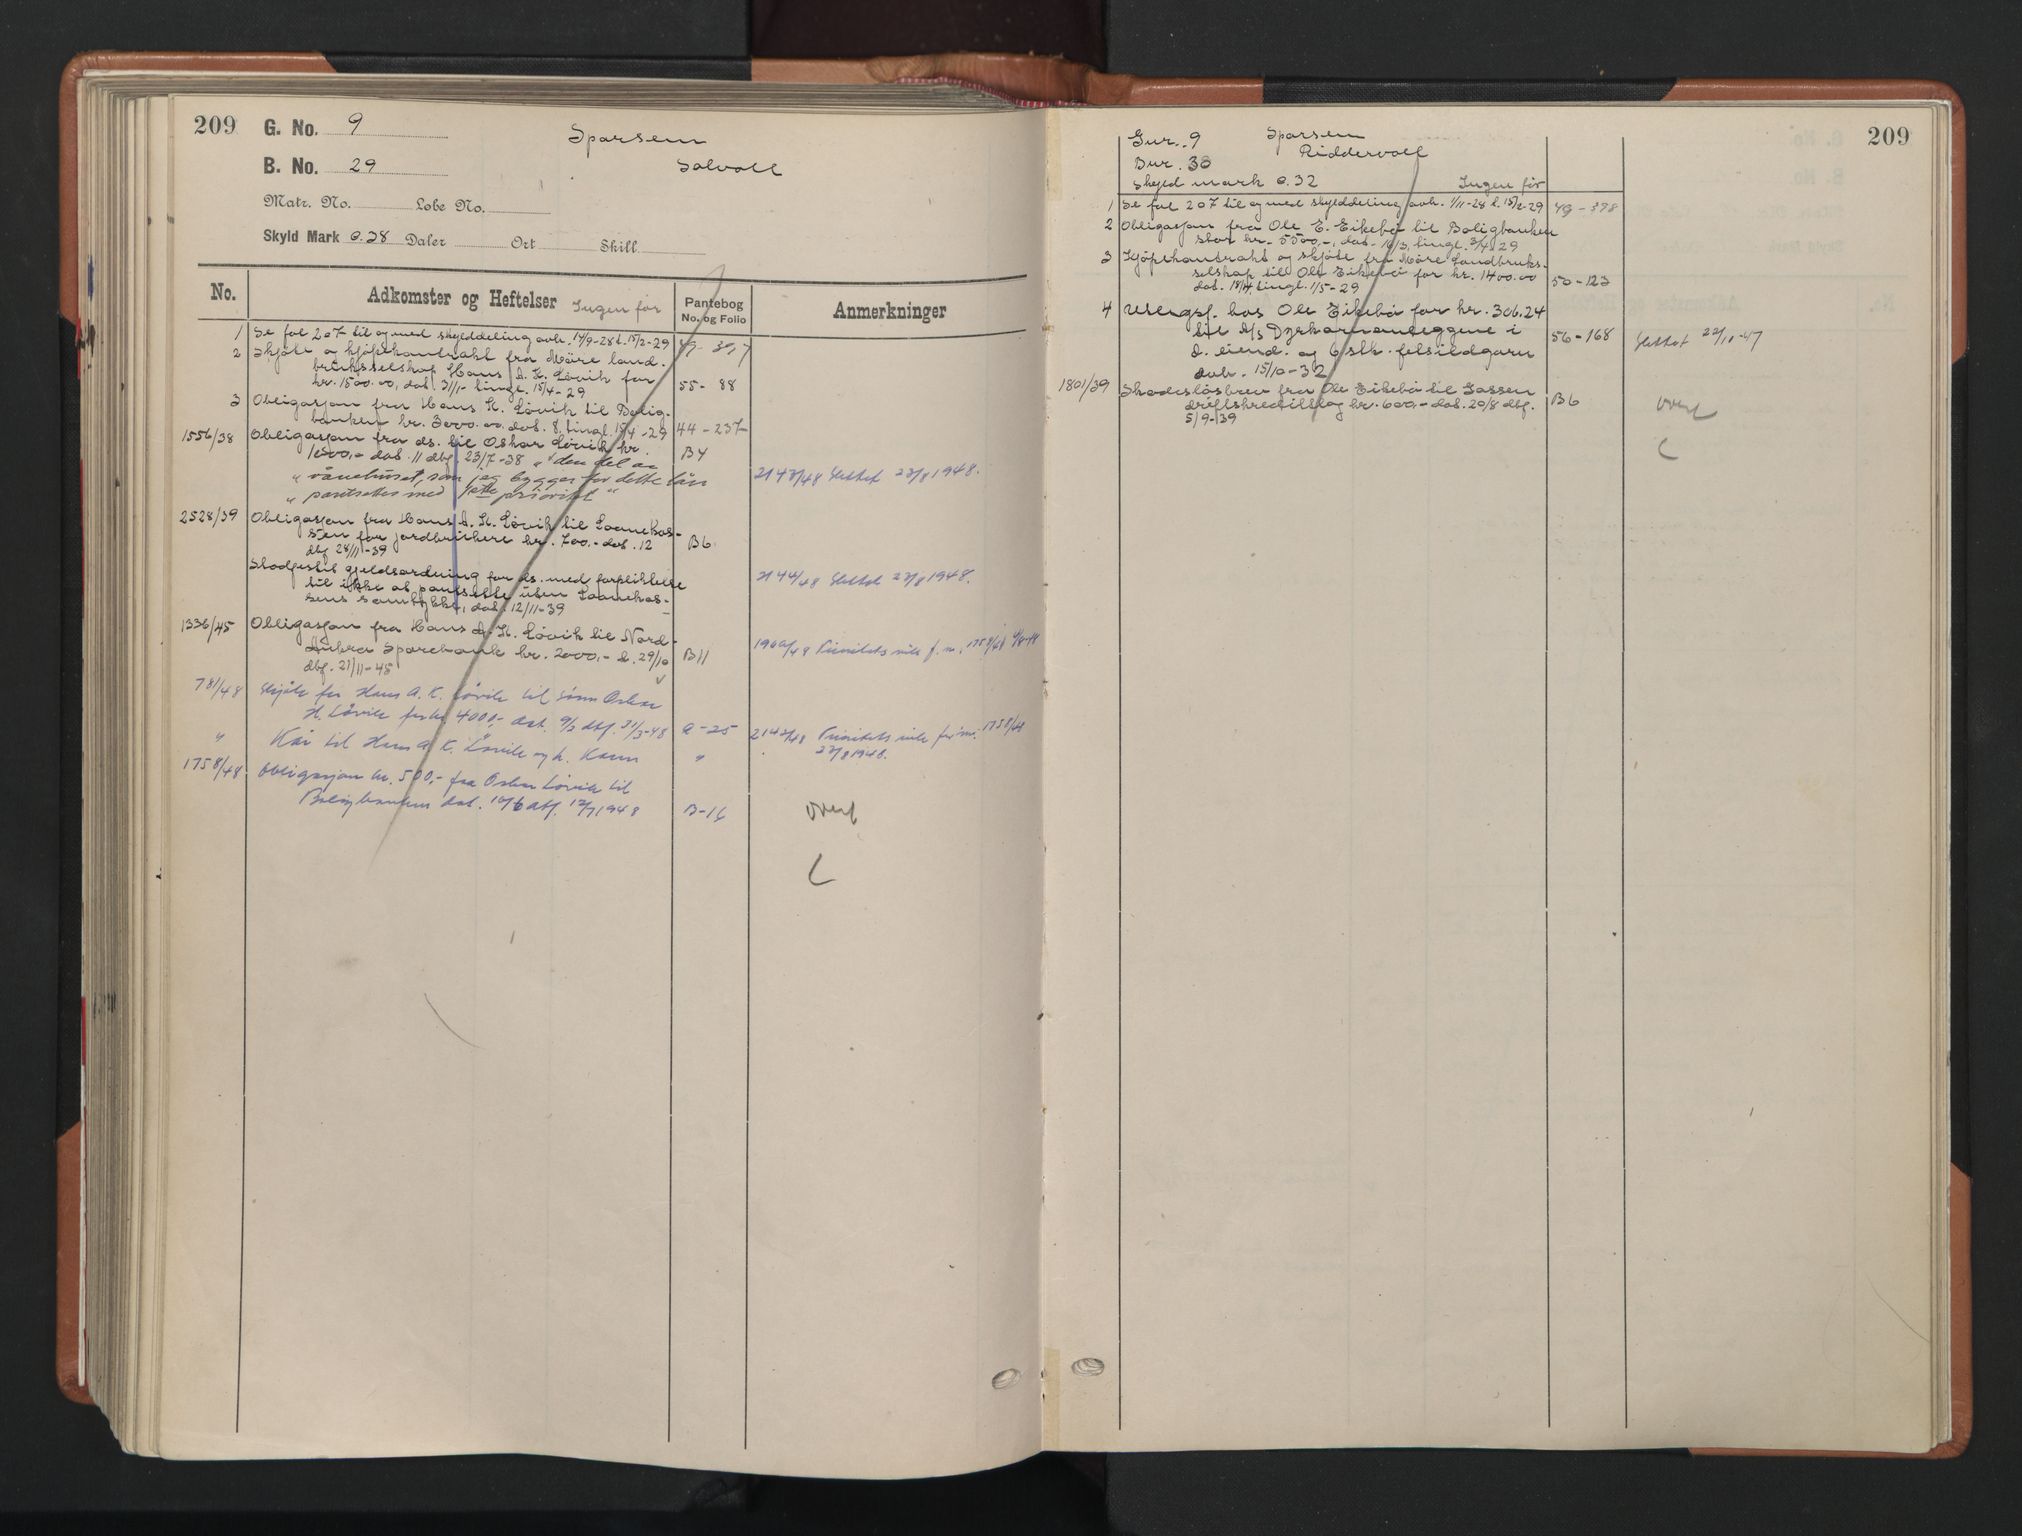 209
G. No. 9
Sparsem
B. No. 29
Solvoll
Matr. No. Løbe No.
Skyld Mark 0.28 Daler Ort Skill
No. Adkomster og Heftelser Ingen før Pantebog No. og Folio Anmerkninger
1 Se fol 207 til og med skylddeling avh. 14/9-28 t. 15/2-29
2 Skjöte o kjöpekontrakt fra Möre land-
bruksselskap Hans A. K. Lövik for
kr. 1500.00, dat. 31/1- tingl. 15/4-29 55-88
3 Obligasjon fra Hans K. Lövik til Bolig-
banken kr. 3000.00. dat. 8, tingl. 15/4-29 44-237
1556/38 Obligasjon fra ds. til Oskar Lövik kr.
1500,- dat. 11 dbf. 23/7-38 "den del av B4
" vånehuset, som jeg bygger for dette lån
" pantsettes med 1ste prioritet " 2143/48 Slettet 23/8 1948.
2528/39 Obligasjon fra Hans A. K. Lövik til Laanekas-
sen for jordbrukere kr. 700.- dat. 12 B6
dbf 28/11-39
Stadfestet gjeldsordning for ds. med forpliktelse
til ikke at pantsette uten Laanekas- 2144/48 Slettet 23/8 1948.
sens samtykke, dat. 12/11-39
1336/45 Obligasjon fra Hans A. K. Lövik til Nord-
Aukra Sparebank kr. 2000,- d. 29/10 B11
dbf. 21/11-45 1960/48 Prioritets vik. f. nr. 1758/48
781/48 Skjøte fra Hans A. K. Lövik til sønn Oskar
H. Lövik for kr. 4000,- dat. 9/3 dbf. 31/3-48 A-25
" Kår til Hans A. K. Lövik og h. Kone " 2142/48 Prioritets vik for nr. 1758/48
23/8 1948.
1758/48 Obligasjon kr. 500,- fra Oskar Lövik til
Boligbanken dat. 10/6 dbf. 12/7 1948 B-16 overf
209
Gnr. 9 Sparsem
Bnr. 30 Riddervoll
Skyld mark 0.32 Ingen før
1 Se fol 207 til og med skylddeling avh. 1/11-28 t. 15/2-29 49-398
2 Obligasjon fra Ole E. Eikebö til Boligbanken
stor kr. 5500,-, dat. 16/3, tingl. 3/4-29
3 Kjöpekontrakt og skjöte fra Möre Landbruks-
selskap til Ole Eikebö for kr. 1400.00
dat. 18/4, tingl. 1/5-29 50-123
4 Utlegsf. hos Ole Eikebö for kr. 306.24
til A/S Dyrkornanleggene i
d. eiend. og 6 stk. fetsildgarn 56-168 Slettet 22/11-47
avh. 15/10-32
1801/39 Skadeslösbrev fra Ole Eikebö til Gossen
driftskredittlag kr. 600,- dat. 20/8 dbf. B6 overf
5/9-39